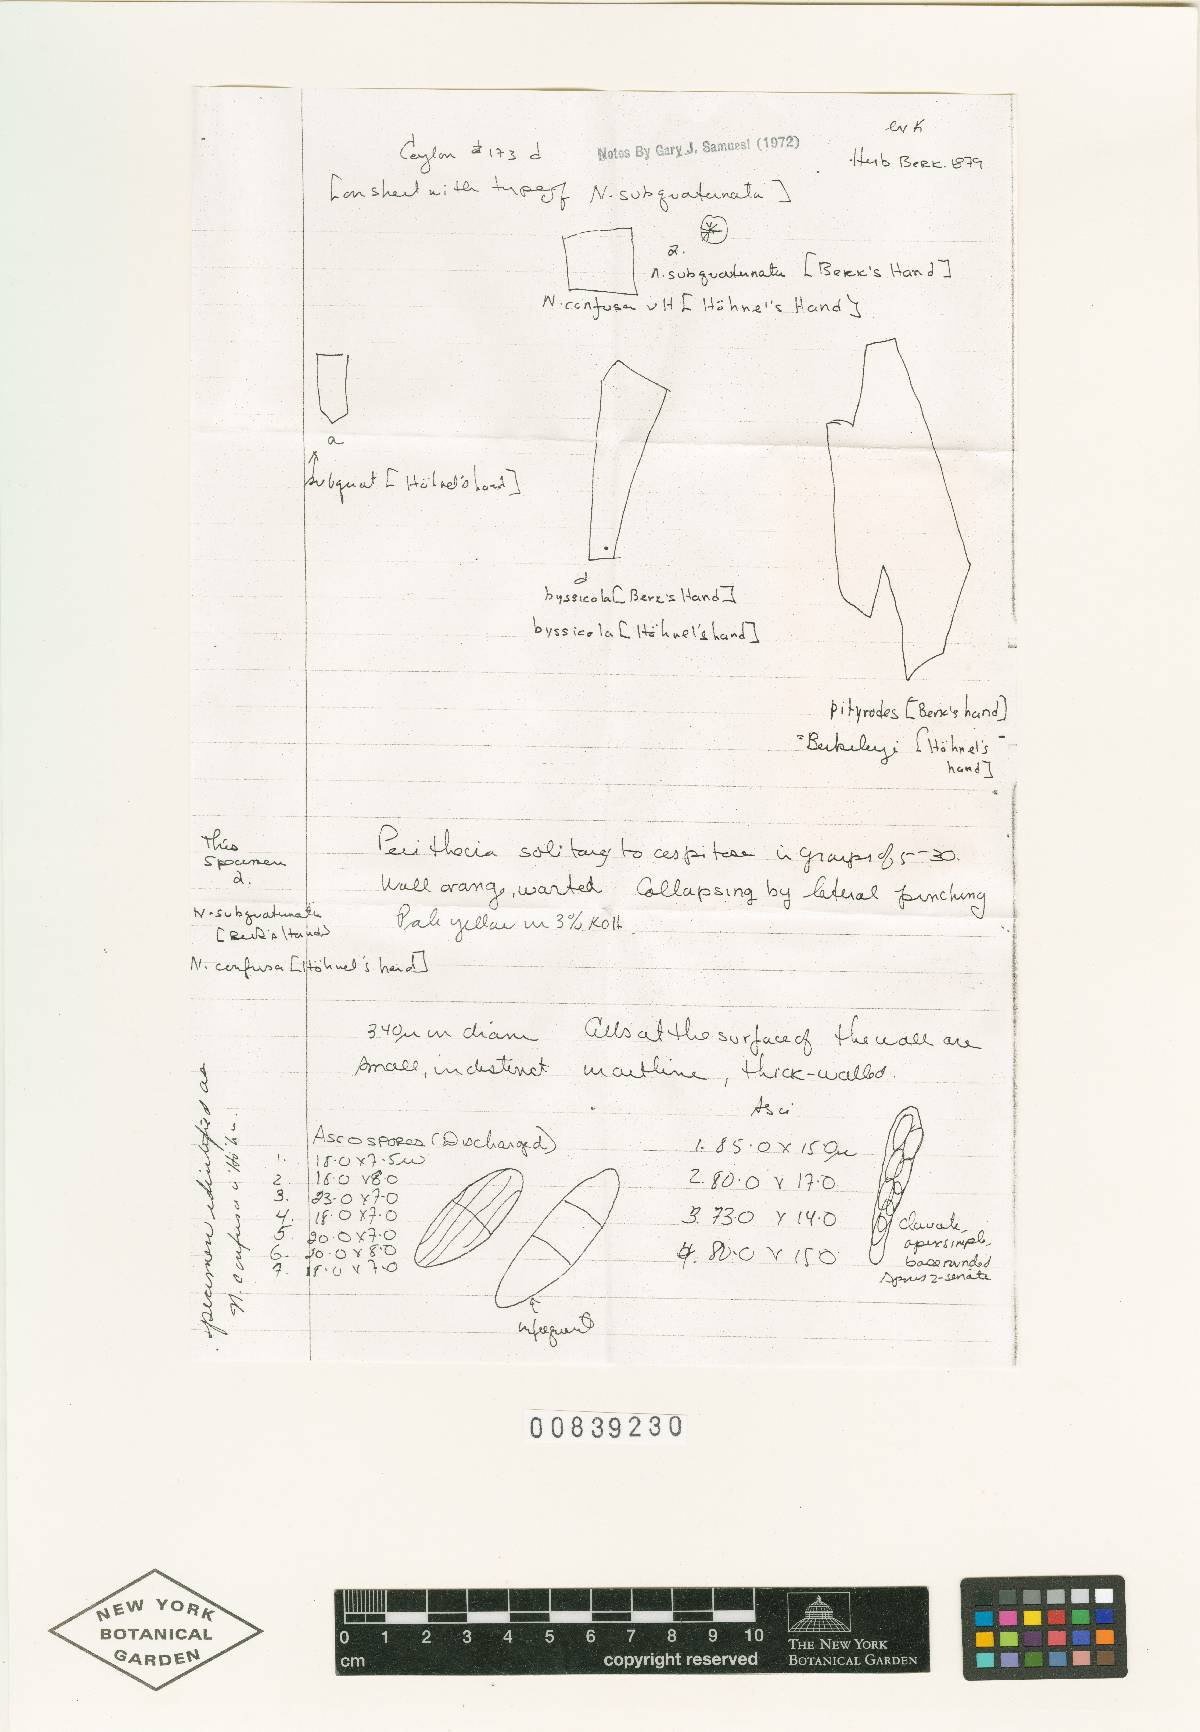 Ceylon #173 d
Notes By Gary J. Samuesl (1972)
ex K
Herb Berk. 1879
[on sheet with type of N. subquaternata]
2.
N. subquaternata [Berk's Hand]
N. confusa vH [Höhnel's Hand]
a
subquat [Höhnel's hand]
d
byssicola [Berk's Hand]
byssicola [Höhnel's hand]
pityrodes [Berk's hand]
=Berkeleyi [Höhnel's
hand]
This
specimen
2.
N. subquaternata
[Berk's Hand]
N. confusa [Höhnel's hand]
Perithecia solitary to cespitose in groups of 5-30.
Wall orange, warted Collapsing by lateral pinching
Pale yellow in 3% KOH.
340μ in diam Cells at the surface of the wall are
small, indistinct in outline, thick-walled.
specimen identified as
N. confusa v. Höhn.
Ascospores (Discharged)
1. 18.0 x 7.5μ
2. 18.0 x 8.0
3. 23.0 x 7.0
4. 18.0 x 7.0
5. 20.0 x 7.0
6. 20.0 x 8.0
7. 18.0 x 7.0
infrequent
Asci
1. 85.0 x 15.0μ
2. 80.0 x 17.0
3. 73.0 x 14.0
4. 80.0 x 15.0
clavate,
apex simple,
base rounded
Spores 2-seriate
00839230
NEW YORK
BOTANICAL
GARDEN
0 1 2 3 4 5 6 7 8 9 10
cm
copyright reserved
THE NEW YORK
BOTANICAL GARDEN